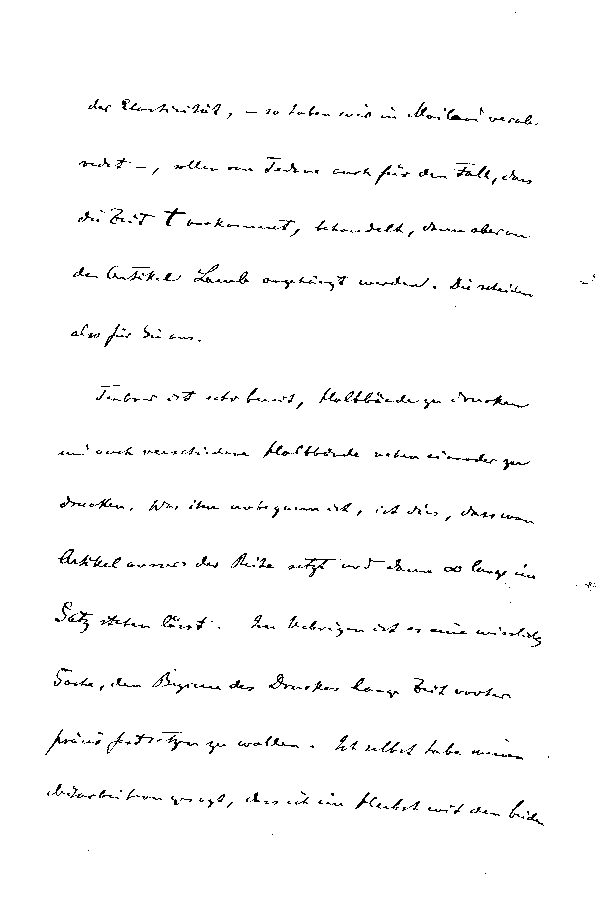 der Elasticität, – so haben wir in Mailand verab-
redet –, sollen von Tedone auch für den Fall, dass
die Zeit t vorkommt, behandelt, dann aber an
den Artikel Lamb angehängt werden. Die scheiden
also für Sie aus.
Teubner ist sehr bereit, Halbbände zu drucken
und auch verschiedene Halbbände neben einander zu
drucken. Was ihm unbequem ist, ist dies, dass man
Artikel ausser der Reihe setzt und dann ∞ lange im
Satz stehen lässt. Im Uebrigen ist es eine missliche
Sache, den Beginn des Druckes lange Zeit vorher
präcis festsetzen zu wollen. Ich selbst habe meinen
Mitarbeitern gesagt, dass ich im Herbst mit den beiden